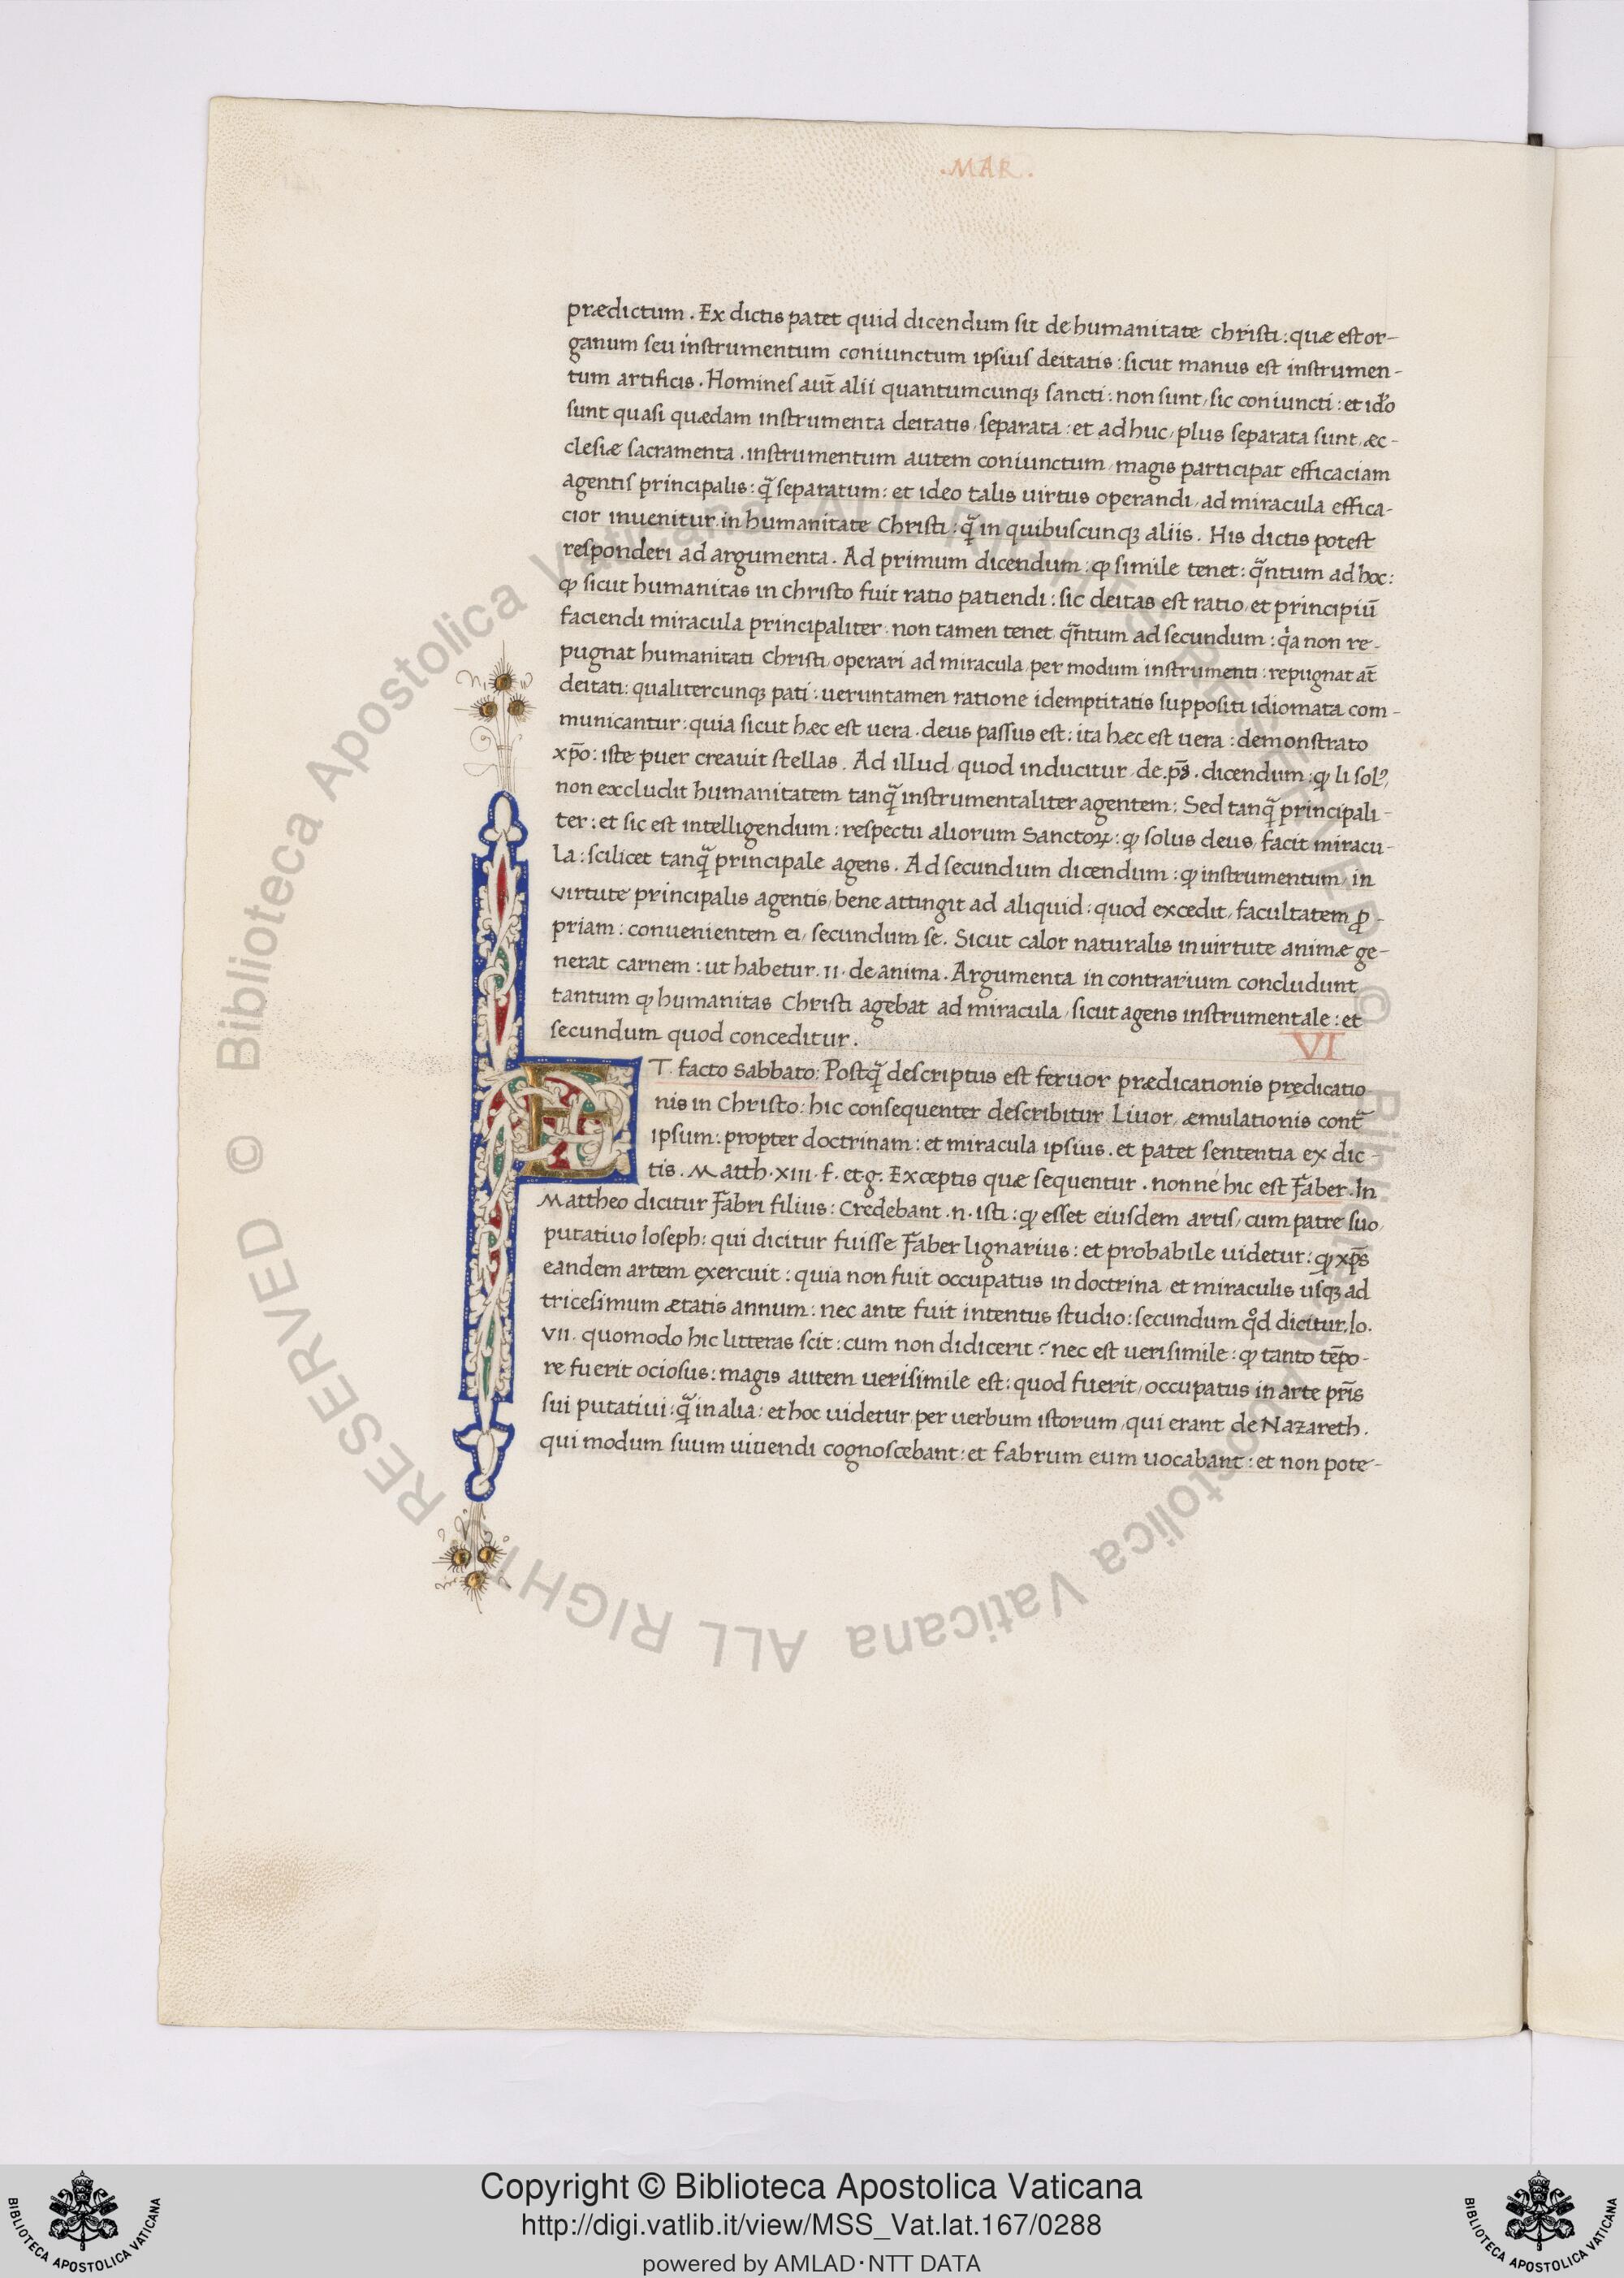 .MAR.
prædictum. Ex dictis patet quid dicendum sit de humanitate christi: quæ est or-
ganum seu instrumentum coniunctum ipsius deitatis: sicut manus est instrumen-
tum artificis. Homines aut̄ alii quantumcunqꝫ sancti: non sunt, sic coniuncti: et id̄o
sunt quasi quædam instrumenta deitatis, separata: et ad huc, plus separata sunt, æc-
clesiæ sacramenta. instrumentum autem coniunctum, magis participat efficaciam
agentis principalis: q̃ separatum: et ideo talis uirtus operandi, ad miracula effica-
cior inuenitur in humanitate Christi: q̃ in quibuscunqꝫ aliis. His dictis potest
responderi ad argumenta. Ad primum dicendum: ꝙ simile tenet: q̃ntum ad hoc:
ꝙ sicut humanitas in christo fuit ratio patiendi: sic deitas est ratio, et principiū
faciendi miracula principaliter. non tamen tenet q̃ntum ad secundum: qͥa non re-
pugnat humanitati Christi, operari ad miracula, per modum instrumenti: repugnat at̄
deitati: qualitercunqꝫ pati: ueruntamen ratione idemptitatis suppositi idiomata com-
municantur: quia sicut hæc est uera. deus passus est: ita hæc est uera: demonstrato
xp̄o: iste puer creauit stellas. Ad illud, quod inducitur, de .ps̄. dicendum: ꝙ li solꝰ,
non excludit humanitatem tanq̃ instrumentaliter agentem: Sed tanq̃ principali-
ter: et sic est intelligendum: respectu aliorum Sanctoꝝ: ꝙ solus deus, facit miracu-
la: scilicet tanq̃ principale agens. Ad secundum dicendum: ꝙ instrumentum, in
virtute principalis agentis, bene attingit ad aliquid: quod excedit, facultatem ꝓ-
priam: conuenientem ei, secundum se. Sicut calor naturalis in uirtute animæ ge-
nerat carnem: ut habetur. II. de anima. Argumenta in contrarium concludunt,
tantum ꝙ humanitas Christi agebat ad miracula, sicut agens instrumentale: et
secundum quod conceditur.
VI
ET. facto sabbato: Postq̃ descriptus est feruor prædicationis prędicatio
nis in Christo: hic consequenter describitur Liuor, æmulationis cont̃
ipsum: propter doctrinam: et miracula ipsius. et patet sententia ex dic-
tis. Matth. XIII. f. et .g. Exceptis quæ sequentur. nonné hic est Faber. In
Mattheo dicitur Fabri filius: Credebant .n. isti: ꝙ esset eiusdem artis, cum patre suo,
putatiuo Ioseph: qui dicitur fuisse Faber lignarius: et probabile uidetur: ꝙ xp̄s
eandem artem exercuit: quia non fuit occupatus in doctrina, et miraculis usqꝫ ad
tricesimum ætatis annum: nec ante fuit intentus studio: secundum qͦd dicitur. Io.
VII. quomodo hic litteras scit: cum non didicerit? nec est uerisimile: ꝙ tanto tēpo-
re fuerit ociosus: magis autem uerisimile est: quod fuerit, occupatus in arte pr̄is
sui putatiui: q̃ in alia: et hoc uidetur per uerbum istorum, qui erant de Nazareth.
qui modum suum uiuendi cognoscebant: et fabrum eum uocabant: et non pote-
© Biblioteca Apostolica Vaticana ALL RIGHTS RESERVED
© Biblioteca Apostolica Vaticana ALL RIGHTS RESERVED
BIBLIOTECA APOSTOLICA VATICANA
Copyright © Biblioteca Apostolica Vaticana
http://digi.vatlib.it/view/MSS_Vat.lat.167/0288
powered by AMLAD・NTT DATA
BIBLIOTECA APOSTOLICA VATICANA